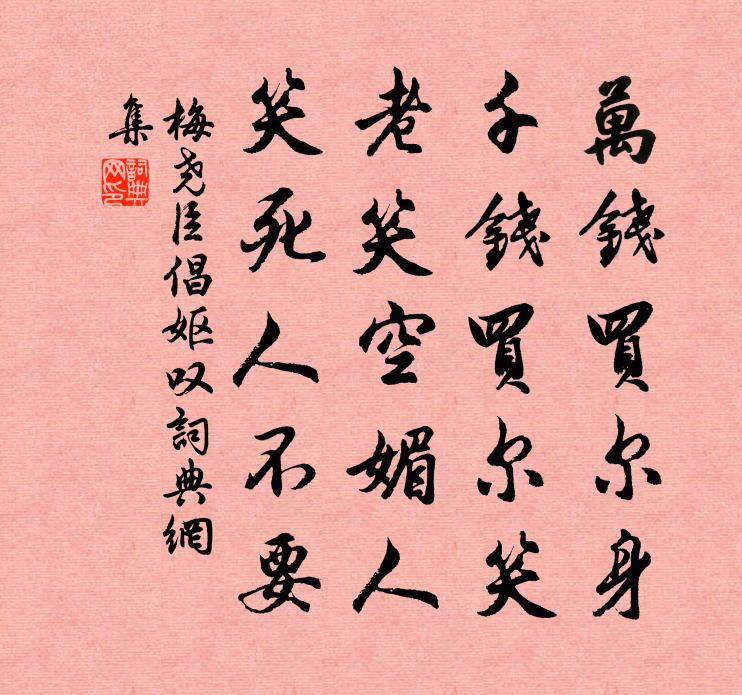 萬錢買尔身
千錢買尔笑
老笑空媚人
笑死人不要
梅尧臣倡妪叹詞典網
集
詞典网印